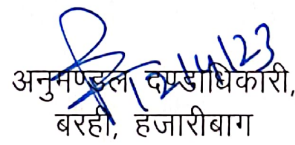 12/4/23
अनुमण्डल दण्डाधिकारी,
बरही, हजारीबाग